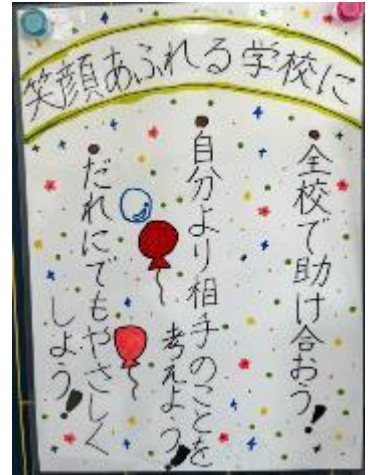 笑顔あふれる学校に
・全校で助け合おう!
・自分より相手のことを
考えよう!
・だれにでもやさしく
しよう!